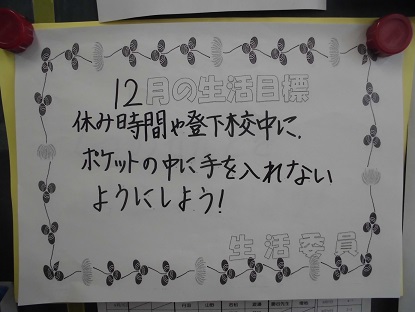 12月の生活目標
休み時間や登下校中に、
ポケットの中に手を入れない
ようにしよう!
生活委員